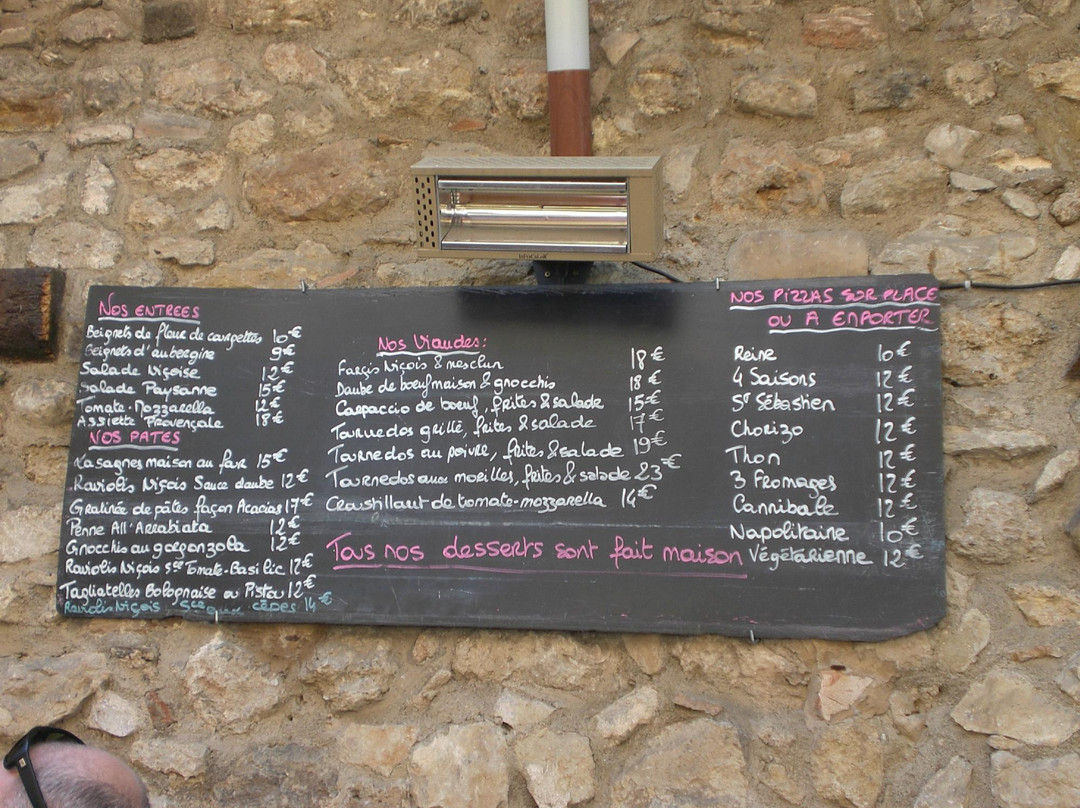 NOS ENTREES
Beignets de fleur de courgettes 10€
Beignets d'aubergine 9€
Salade Niçoise 12€
Salade Paysanne 15€
Tomate-Mozzarella 12€
Assiette Provençale 18€
NOS PATES
Lasagnes maison au four 15€
Raviolis Niçois Sauce daube 12€
Gratinée de pâtes façon Acacias 17€
Penne All'Arrabiata 12€
Gnocchis au gorgonzola 12€
Raviolis Niçois sce Tomate-Basilic 12€
Tagliatelles Bolognaise ou Pistou 12€
Raviolis Niçois Sce aux CÈPES 14€
Nos Viandes:
Farçis Niçois & mesclun 18€
Daube de boeuf maison & gnocchis 18€
Carpaccio de boeuf, frites & salade 15€
Tournedos grillé, frites & salade 17€
Tournedos au poivre, frites & salade 19€
Tournedos aux morilles, frites & salade 23€
Croustillant de tomate-mozzarella 14€
Tous nos desserts sont fait maison
NOS PIZZAS SUR PLACE
OU A EMPORTER
Reine 10€
4 Saisons 12€
St Sébastien 12€
Chorizo 12€
Thon 12€
3 Fromages 12€
Cannibale 12€
Napolitaine 10€
Végétarienne 12€